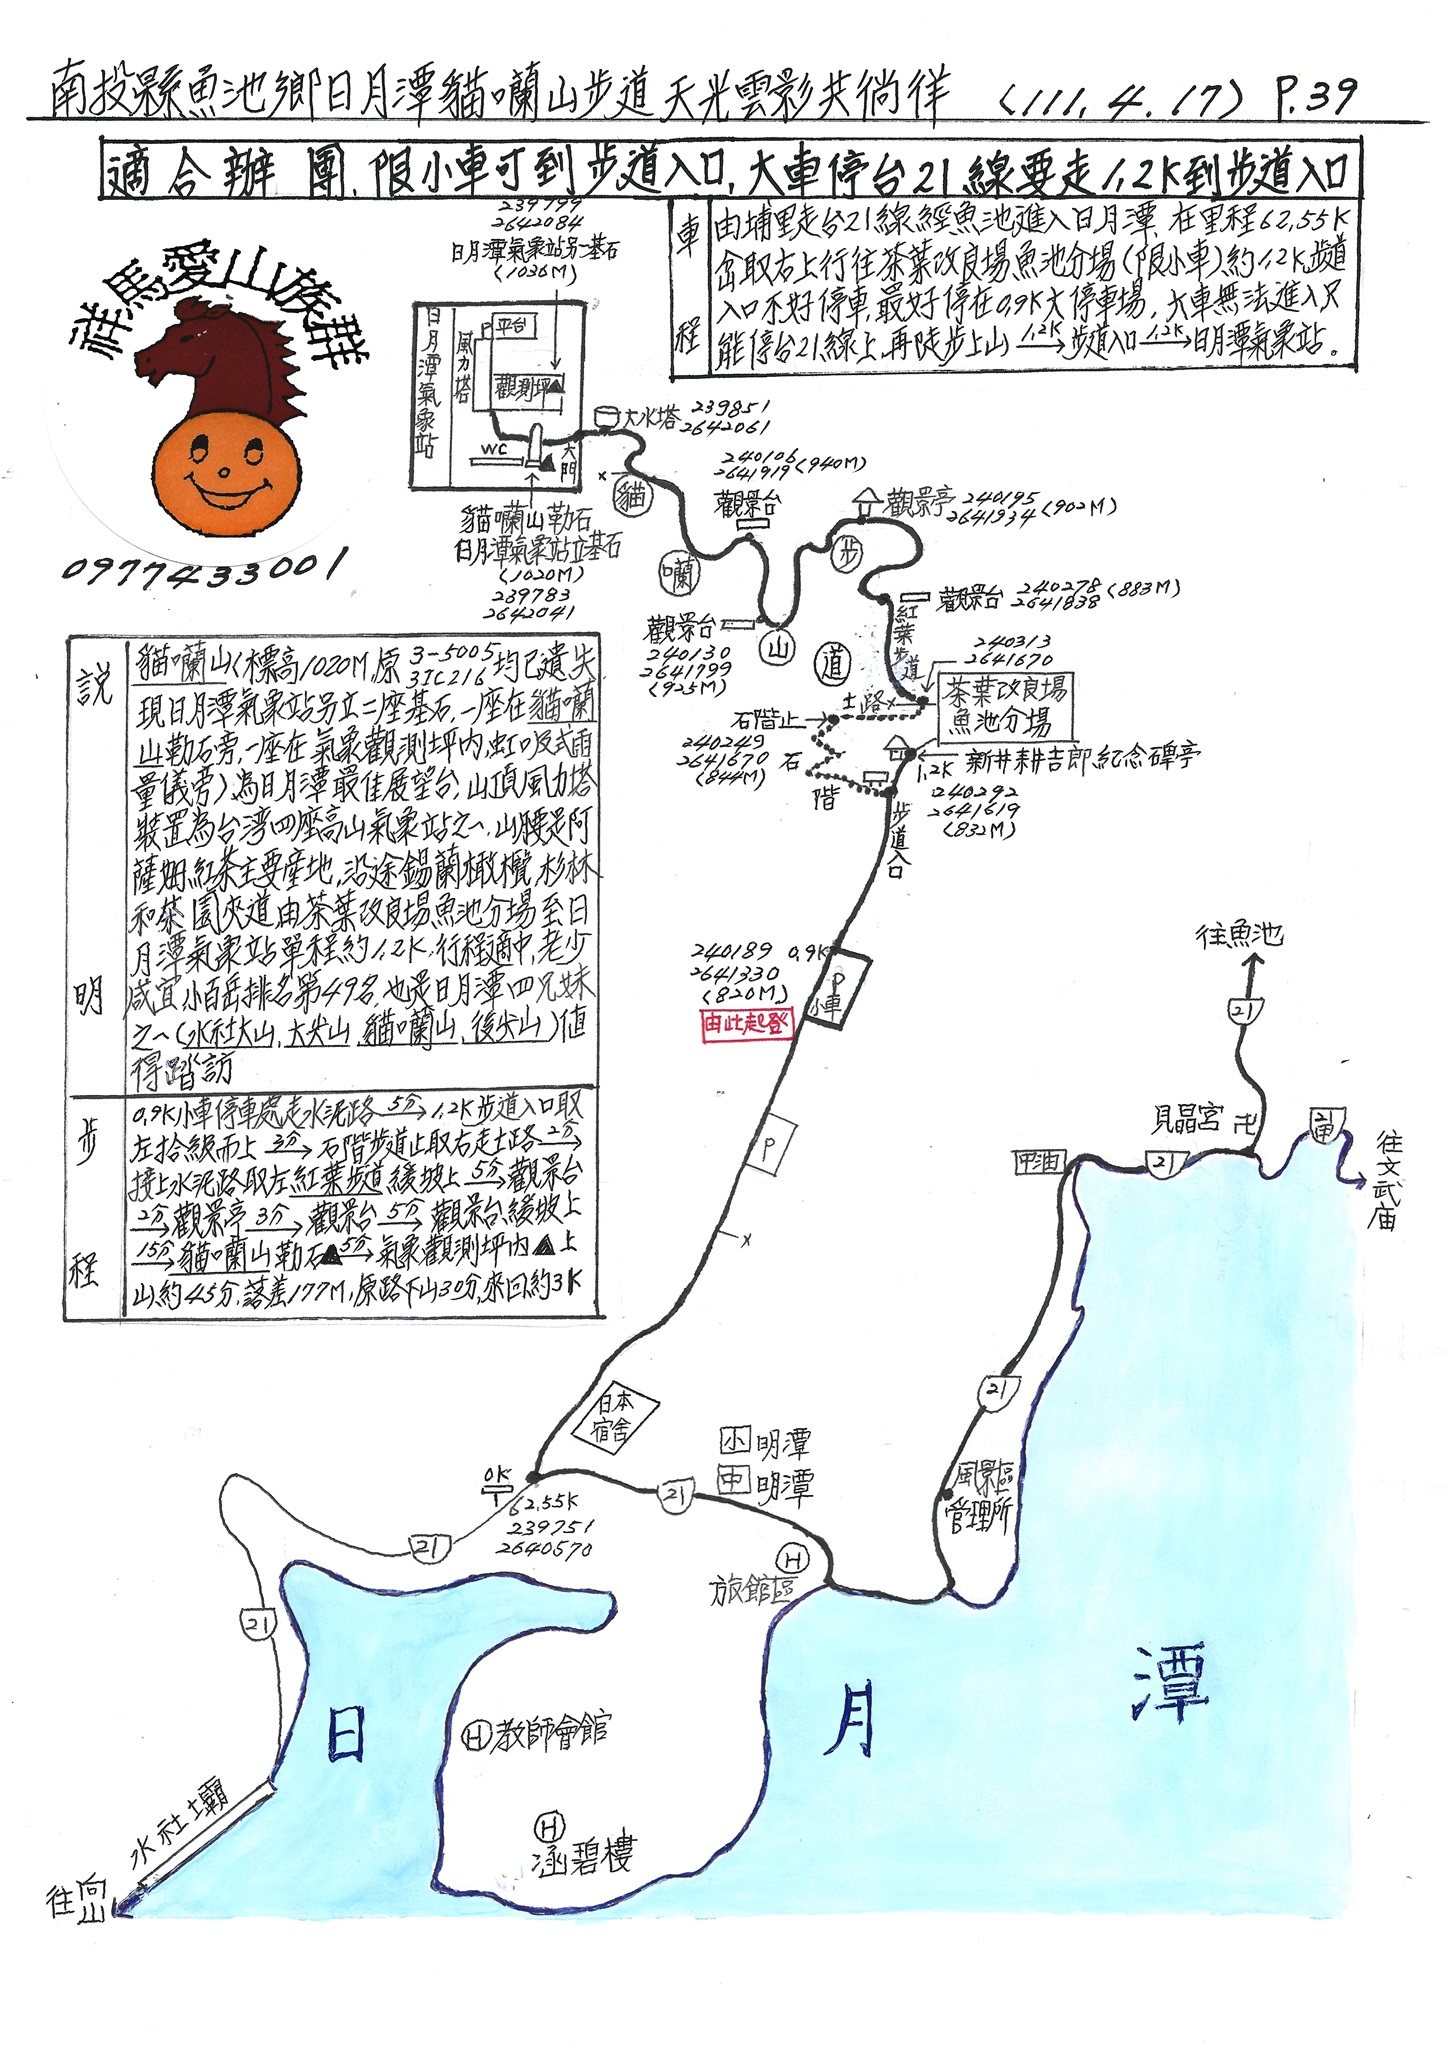 南投縣魚池鄉日月潭貓囒山步道 天光雲影共徜徉 (111.4.17) P.39
適合辦團.限小車可到步道入口.大車停台21線要走1.2K到步道入口
車程
由埔里走台21線經魚池進入日月潭.在里程62.55K
岔取右上行往茶葉改良場魚池分場(限小車)約1.2K步道
入口不好停車.最好停在0.9K大停車場.大車無法進入只
能停台21線上.再陡步上山 1.2K→步道入口 1.2K→日月潭氣象站。
祥馬愛山族群
0977433001
239799
2642084
日月潭氣象站另一基石
(1036M)
日月潭氣象站
風力塔
P
平台
觀測坪▲
WC
大門
大水塔 239851
2642061
貓囒山勒石
日月潭氣象站立基石
(1020M)
239783
2642041
x
貓
囒
山
步
道
240106
2641919 (940M)
觀景台
觀景亭 240195
2641934 (902M)
觀景台 240278 (883M)
2641838
觀景台
240130
2641799
(925M)
紅葉步道
240313
2641670
茶葉改良場
魚池分場
土路x
石階止
240249
2641670
(844M)
石階
1.2K 新井耕吉郎紀念碑亭
240292
2641619
(832M)
步道入口
240189 0.9K
2641330
(820M)
由此起登
P
小車
P
x
說明
貓囒山(標高1020M.原3-5005 3IC216均已遺失
現日月潭氣象站另立二座基石.一座在貓囒
山勒石旁.一座在氣象觀測坪內.虹吸式雨
量儀旁).為日月潭最佳展望台.山頂風力塔
裝置為台湾四座高山氣象站之一.山腰是阿
薩姆紅茶主要產地.沿途錫蘭橄欖.杉林
和茶園夾道.由茶葉改良場魚池分場至日
月潭氣象站單程約1.2K.行程適中.老少
咸宜.小百岳排名第49名.也是日月潭四兄妹
之一(水社大山.大尖山.貓囒山.後尖山)值
得踏訪
步程
0.9K小車停車處走水泥路 5分→1.2K步道入口取
左拾級而上 3分→石階步道止取右走土路 2分→
接上水泥路取左紅葉步道緩坡上 5分→觀景台
2分→觀景亭 3分→觀景台 5分→觀景台.緩坡上
15分→貓囒山勒石▲5分→氣象觀測坪內▲上
山約45分.落差177M.原路下山30分.來回約3K
往魚池
21
見晶宮 卍
21甲
往文武庙
中油
21
21
風景區
管理所
日本
宿舍
小 明潭
中 明潭
0K
62.55K
239751
2640570
21
21
21
H
旅館區
H 教師會館
H
涵碧樓
日月潭
水社壩
往向山